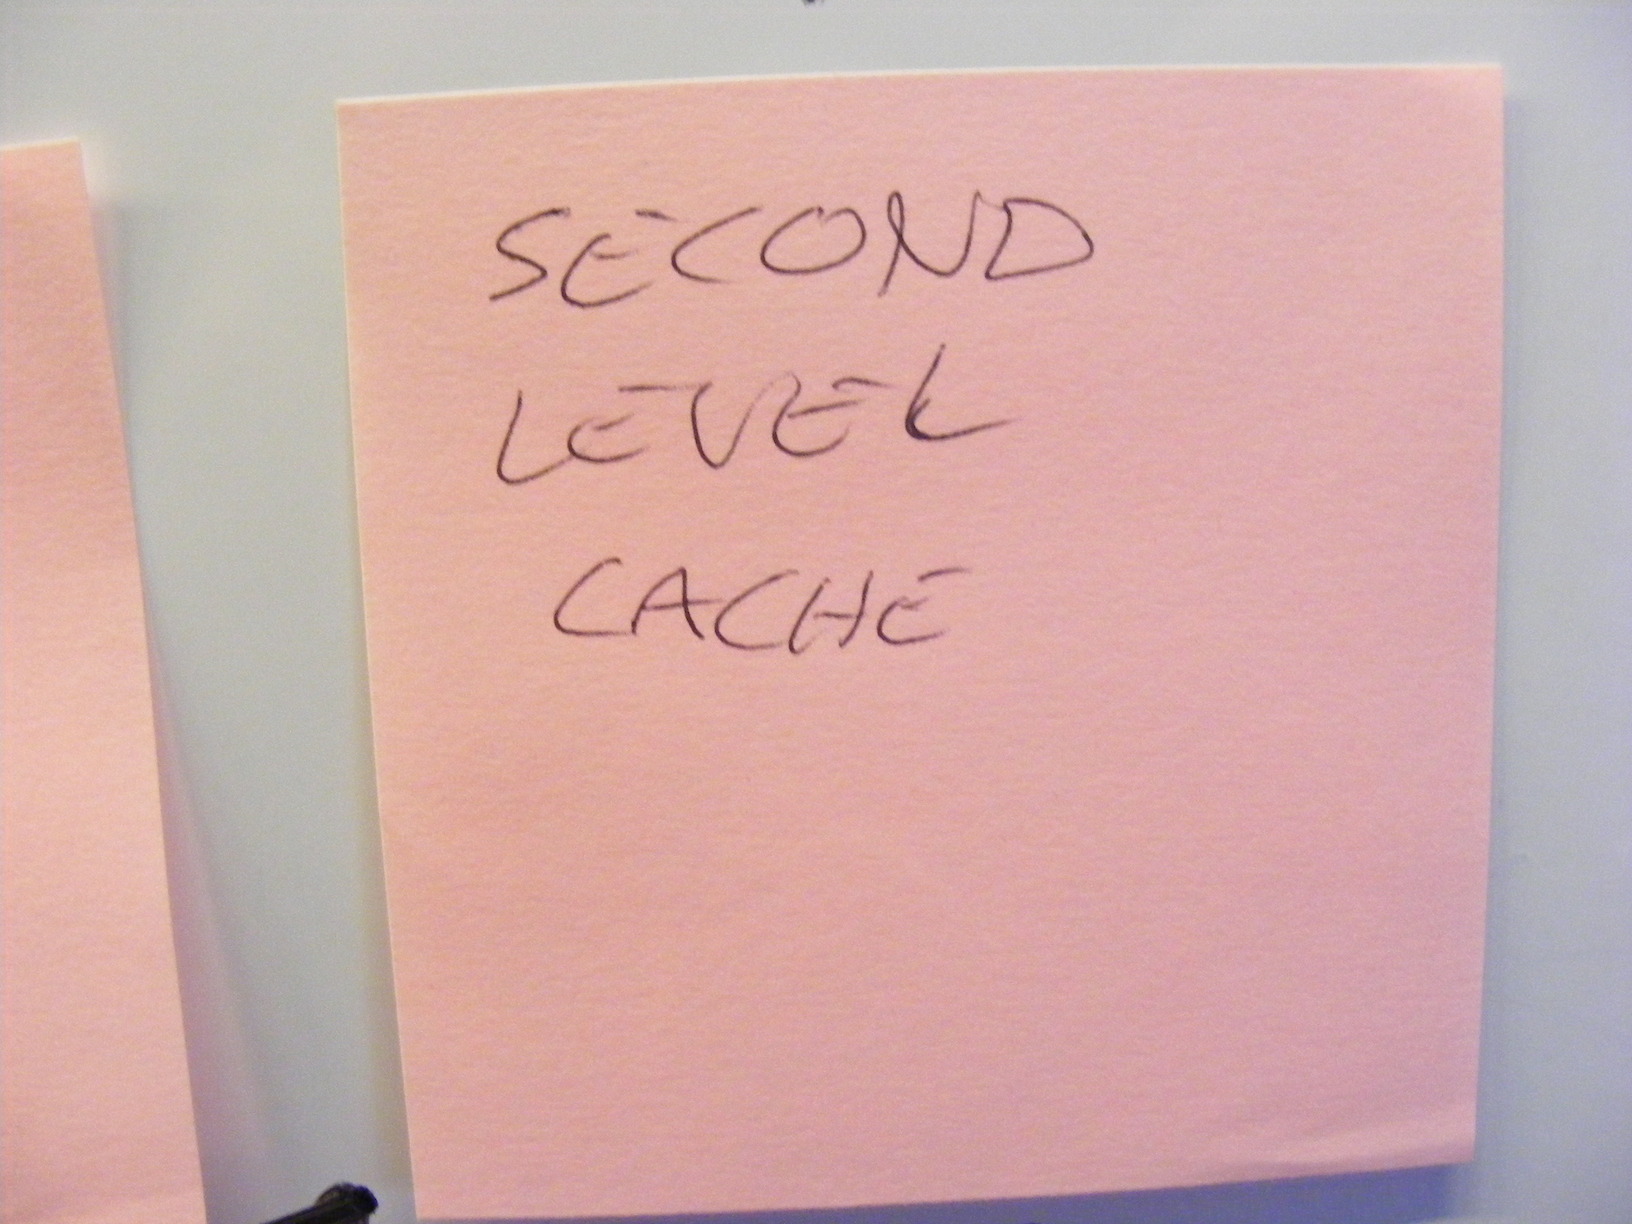 SECOND
LEVEL
CACHE